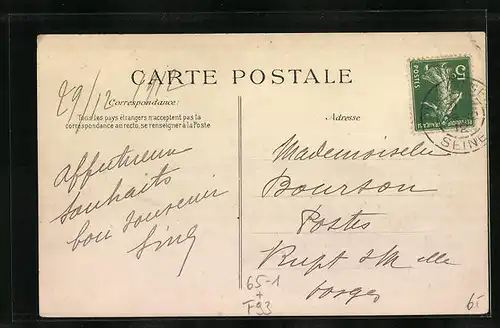 29/12 1912
CARTE POSTALE
Correspondance:
Tous les pays étrangers n'acceptent pas la
correspondance au recto, se renseigner à la Poste
Adresse
POSTES
5
SEINE
affectueux
souhaits
bon souvenir
Mademoiselle
Bourson
Postes
Rupt s/Mlle
Vosges
65-1
+
F93